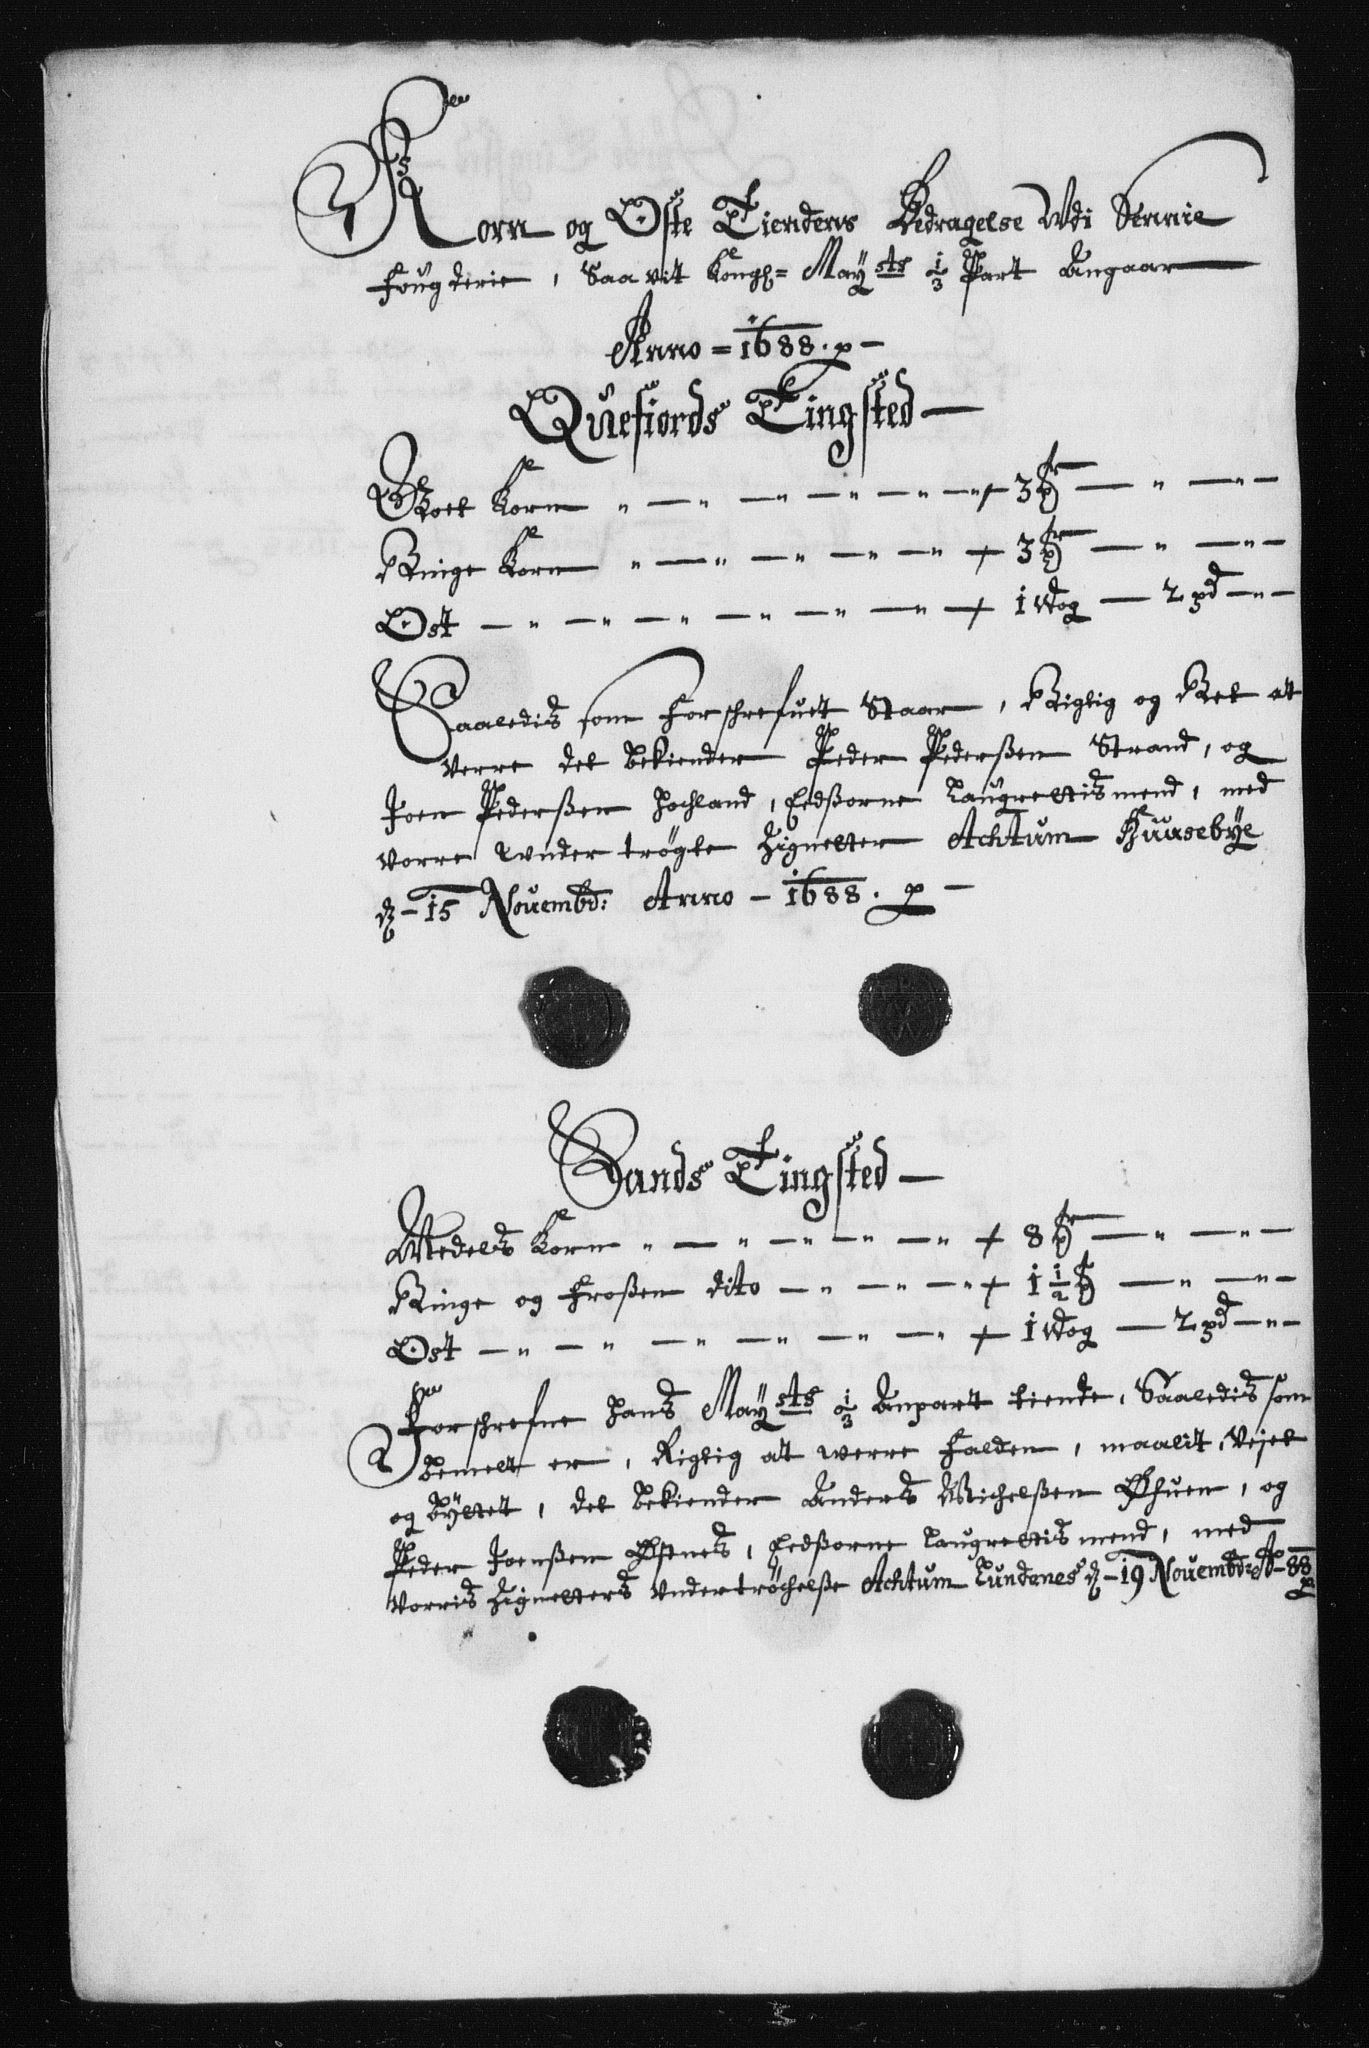 Korn og Oste Tiendens Bedragelse Udi Sennie
fougderie, Saa vit Kongl= Mayst̲s̲ 1/3 Part Angaar
Anno = 1688. p –
Quefiords Tingsted –
Goet Korn „ – „ – „ – „ – „ – „ + 3 – „ – „ –
Ringe Korn „ – „ – „ – „ – „ + 3 – „ – „ –
Ost – „ – „ – „ – „ – „ – „ + 1 Wog – 2 pd – „ –
Saaledis som forschrefuet Staar, Rigtig og Ret at
verre det bekiender Peder Pederßen Strand, og
Joen Pederßen Hochland, Eedßorne Laugrettis mend, med
vorre under trögte Zigneter Achtum Huusebye
d – 15 Novembd: Anno – 1688. p –
Sands Tingsted –
Medels Korn „ – „ – „ – „ + 8 – „ – „ –
Ringe og froßen dito – „ – „ – „ + 1 1/2 – „ – „ –
Ost – „ – „ – „ – „ – „ – „ + 1 Wog – 2 pd – „ –
Forschrefne Hans Mayst̲s̲ 1/3 Anpart tiende, Saaledis som
bemelt er, Rigtig at werre falden, maalit, Vejet
og Byttet, det bekiender Anders Michelßen, og
Peder Joenßen Elsnes, Eedßorne Laugrettis mend, med
vorris Zignetters undertröchelße Achtum Lundenes d – 19 Novembd: A° – 88 p